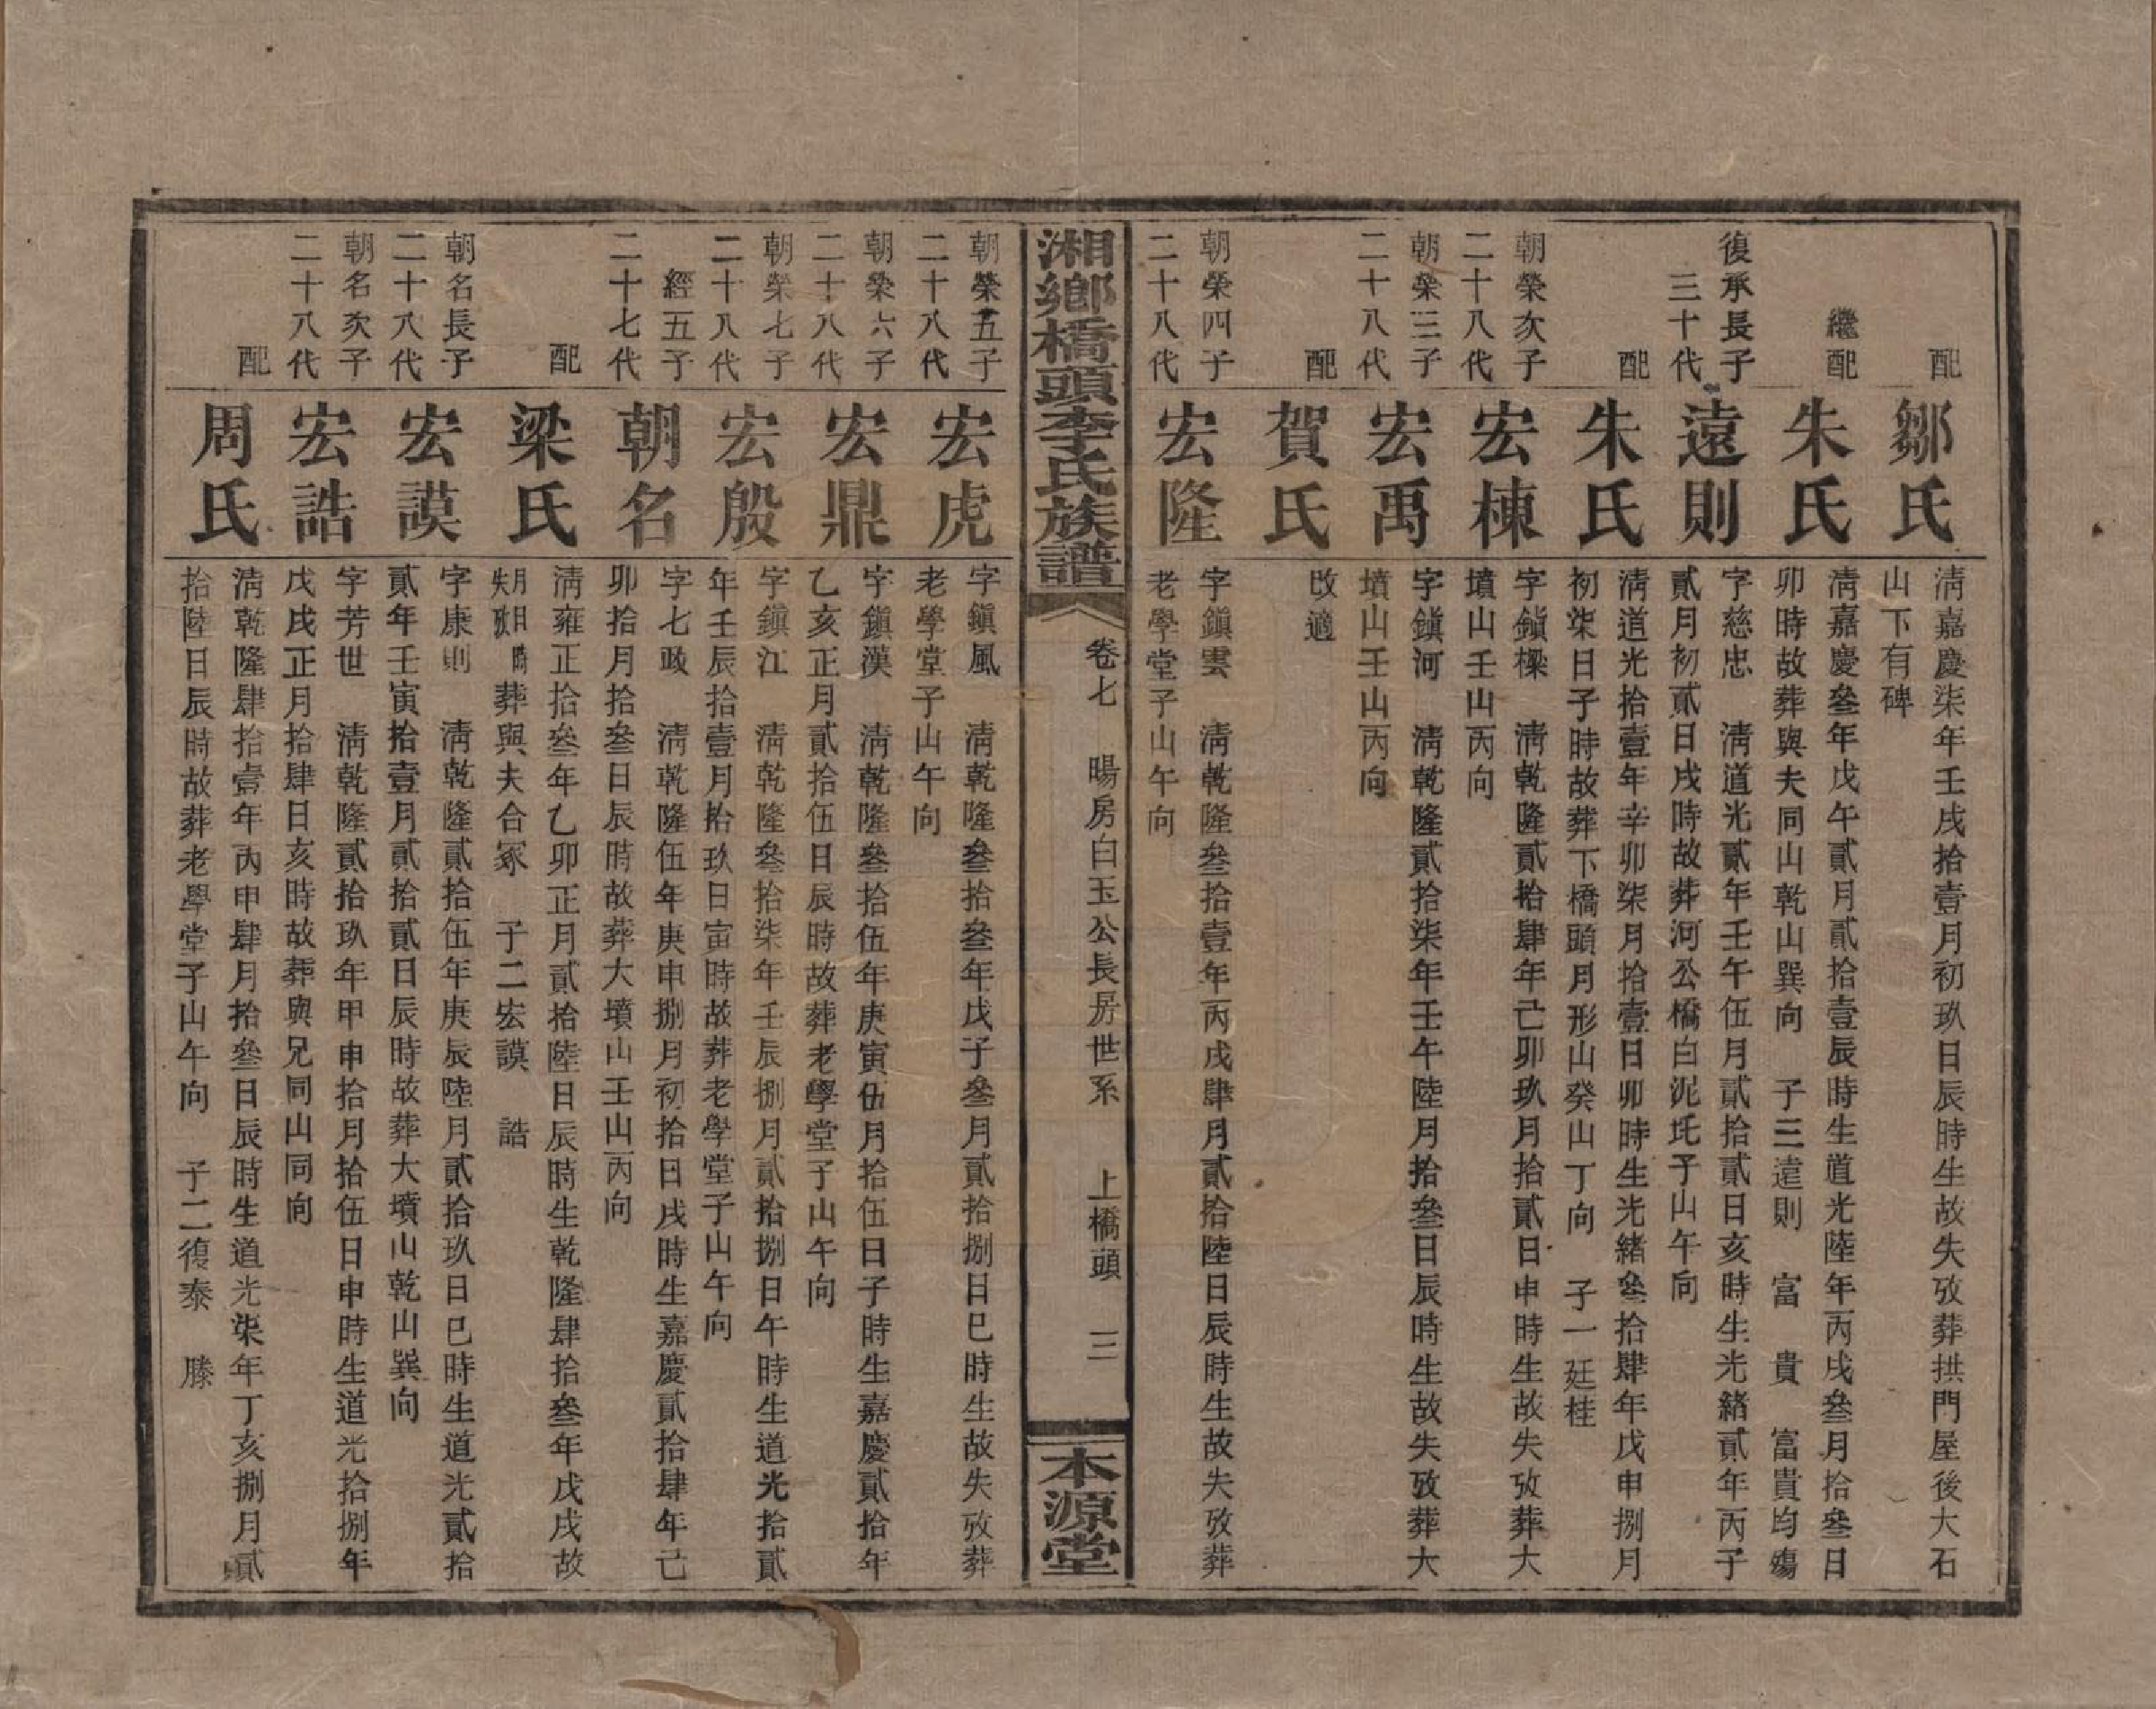 配
鄒氏
淸嘉慶柒年壬戌拾壹月初玖日辰時生故失攷葬拱門屋後大石
山下有碑
繼配
朱氏
淸嘉慶叄年戊午貳月貳拾壹辰時生道光陸年丙戌叄月拾叄日
卯時故葬與夫同山乾山巽向 子三遠則 富 貴 富貴均殤
復承長子
三十代
遠則
字慈忠 淸道光貳年壬午伍月貳拾貳日亥時生光緖貳年丙子
貳月初貳日戌時故葬河公橋白泥坵子山午向
配
朱氏
淸道光拾壹年辛卯柒月拾壹日卯時生光緖叄拾肆年戊申捌月
初柒日子時故葬下橋頭月形山癸山丁向 子一廷桂
朝榮次子
二十八代
宏棟
字鎭樑 淸乾隆貳拾肆年己卯玖月拾貳日申時生故失攷葬大
墳山壬山丙向
朝榮三子
二十八代
宏禹
字鎭河 淸乾隆貳拾柒年壬午陸月拾叄日辰時生故失攷葬大
墳山壬山丙向
配
賀氏
改適
朝榮四子
二十八代
宏隆
字鎭雲 淸乾隆叄拾壹年丙戌肆月貳拾陸日辰時生故失攷葬
老學堂子山午向
湘鄉橋頭李氏族譜
卷七 暘房白玉公長房世系 上橋頭 三
本源堂
朝榮五子
二十八代
宏虎
字鎭風 淸乾隆叄拾叄年戊子叄月貳拾捌日巳時生故失攷葬
老學堂子山午向
朝榮六子
二十八代
宏鼎
字鎭漢 淸乾隆叄拾伍年庚寅伍月拾伍日子時生嘉慶貳拾年
乙亥正月貳拾伍日辰時故葬老學堂子山午向
朝榮七子
二十八代
宏殷
字鎭江 淸乾隆叄拾柒年壬辰捌月貳拾捌日午時生道光拾貳
年壬辰拾壹月拾玖日寅時故葬老學堂子山午向
經五子
二十七代
朝名
字七政 淸乾隆伍年庚申捌月初拾日戌時生嘉慶貳拾肆年己
卯拾月拾叄日辰時故葬大墳山壬山丙向
配
梁氏
淸雍正拾叄年乙卯正月貳拾陸日辰時生乾隆肆拾叄年戊戌故
月日時失攷葬與夫合冢 子二宏謨 誥
朝名長子
二十八代
宏謨
字康則 淸乾隆貳拾伍年庚辰陸月貳拾玖日巳時生道光貳拾
貳年壬寅拾壹月貳拾貳日辰時故葬大墳山乾山巽向
朝名次子
二十八代
宏誥
字芳世 淸乾隆貳拾玖年甲申拾月拾伍日申時生道光拾捌年
戊戌正月拾肆日亥時故葬與兄同山同向
配
周氏
淸乾隆肆拾壹年丙申肆月拾叄日辰時生道光柒年丁亥捌月貳
拾陸日辰時故葬老學堂子山午向 子二復泰 滕